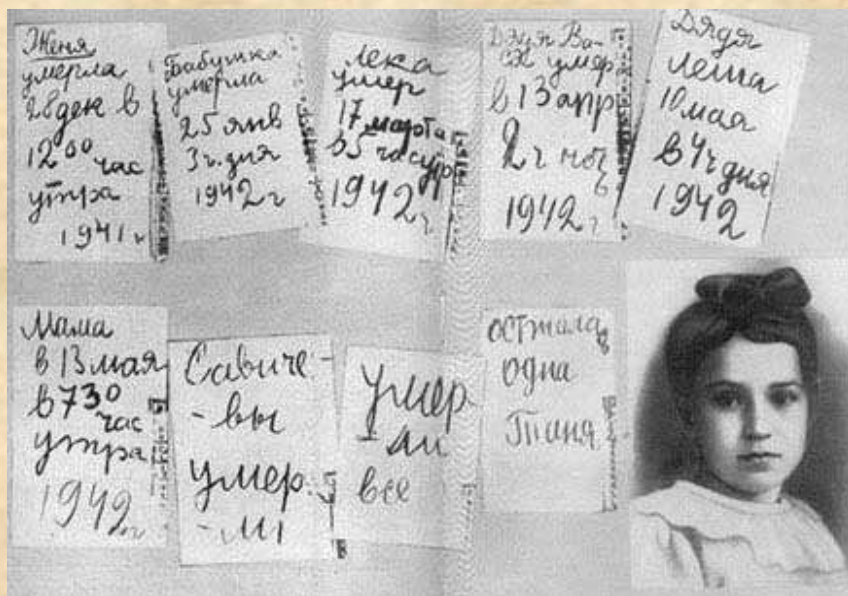 Женя
умерла
28 дек в
12 00 час
утра
1941 г
Бабушка
умерла
25 янв
3 ч. дня
1942 г
Лека
умер
17 марта
в 5 час утр
1942 г.
Дядя Ва-
ся умер
в 13 апр
2 ч ноч
1942 г
Дядя
Леша
10 мая
в 4 ч дня
1942
Мама
в 13 мая
в 7 30
час
утра
1942 г
Савиче-
-вы
умер.
-ли
умер-
-ли
все
осталась
одна
Таня